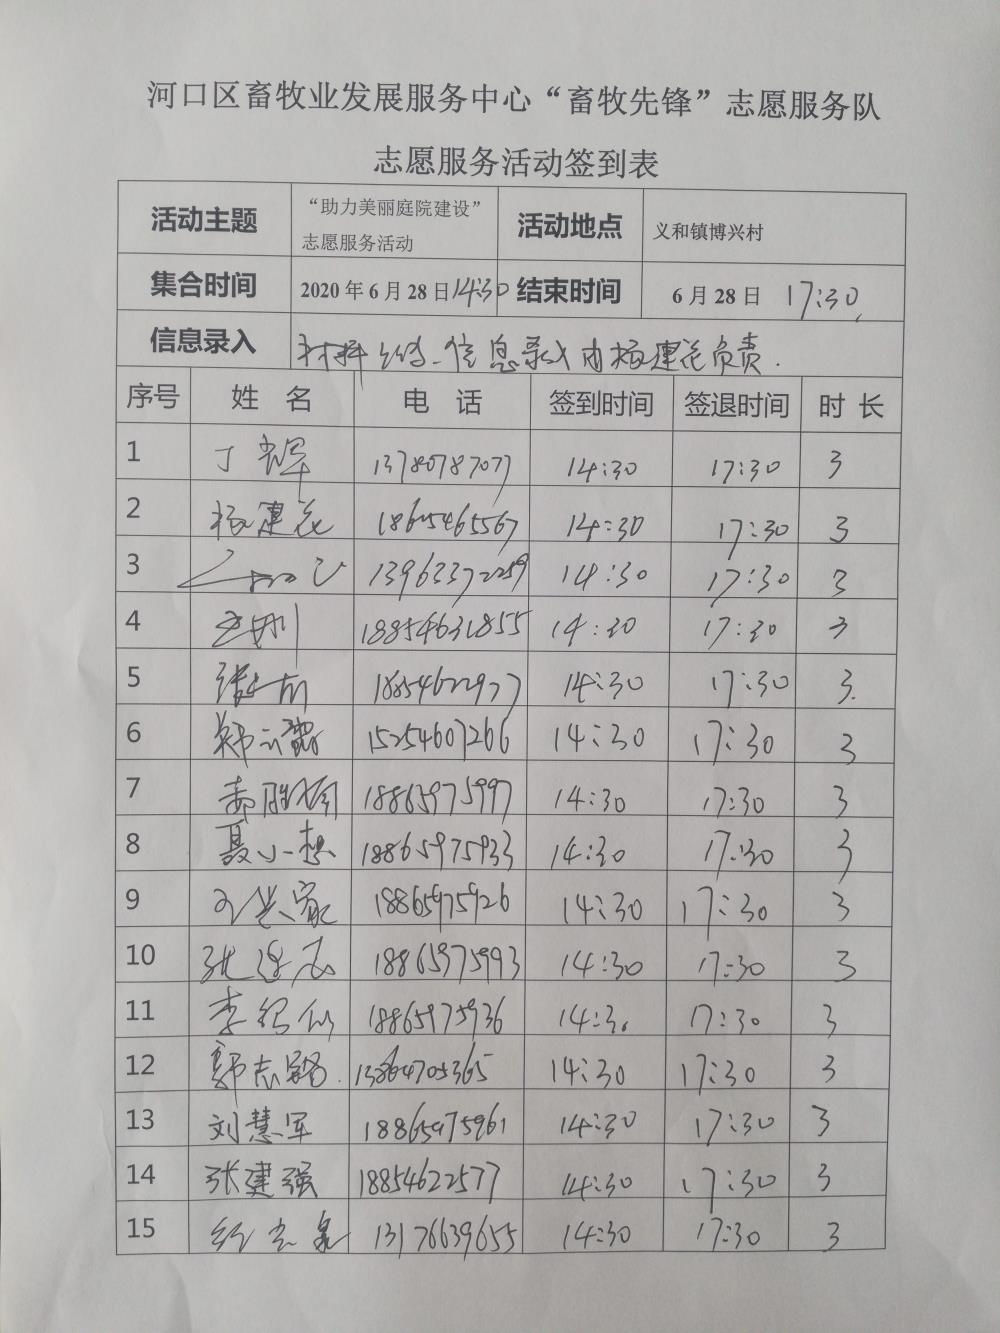 河口区畜牧业发展服务中心“畜牧先锋”志愿服务队
志愿服务活动签到表
活动主题 “助力美丽庭院建设” 志愿服务活动 活动地点 义和镇博兴村
集合时间 2020年6月28日14:30 结束时间 6月28日 17:30
信息录入 信息录入由杨建花负责.
序号 姓名 电话 签到时间 签退时间 时长
1 13780787077 14:30 17:30 3
2 杨建花 18605465567 14:30 17:30 3
3 14:30 17:30 3
4 18854631855 14:30 17:30 3
5 18854622977 14:30 17:30 3
6 15254607266 14:30 17:30 3
7 18865975997 14:30 17:30 3
8 聂小想 18865975933 14:30 17:30 3
9 18865975926 14:30 17:30 3
10 18865975993 14:30 17:30 3
11 18865975936 14:30 17:30 3
12 郭志超 13864705365 14:30 17:30 3
13 刘慧军 18865975961 14:30 17:30 3
14 张建强 18854622577 14:30 17:30 3
15 13176639655 14:30 17:30 3